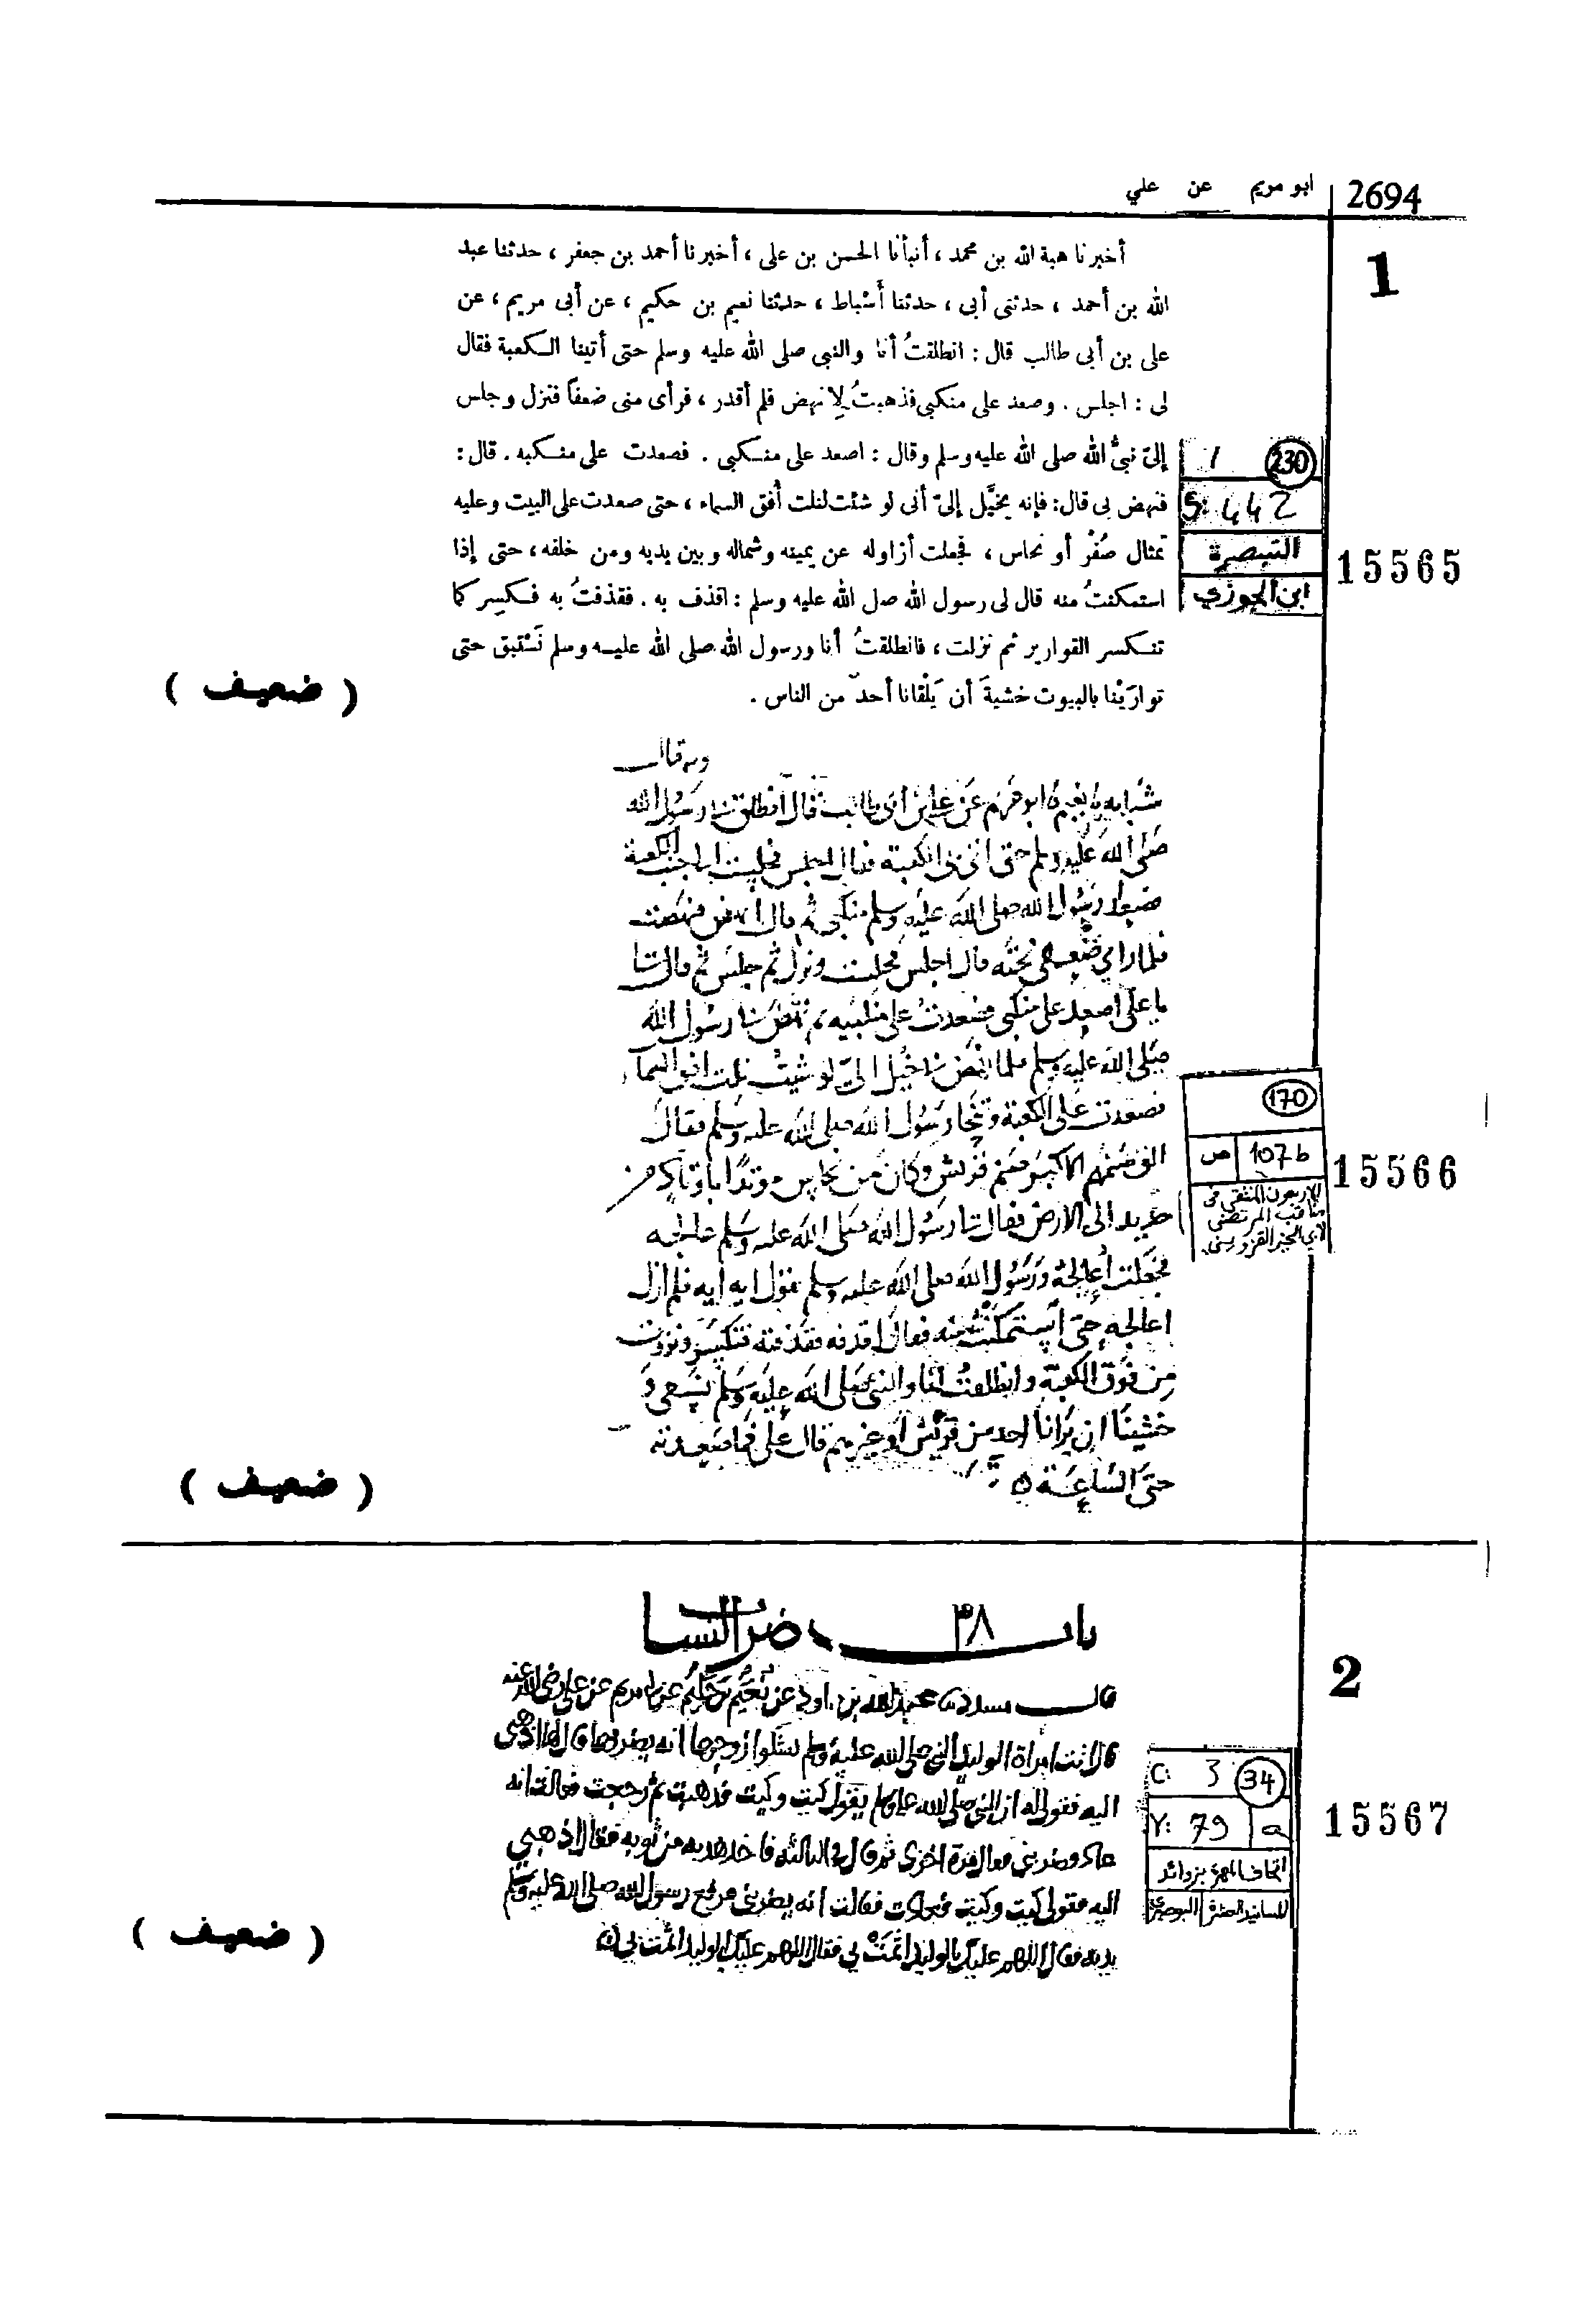 2694
ابو مريم عن علي
1
أخبرنا هبة الله بن محمد ، أنبأنا الحسن بن على ، أخبرنا أحمد بن جعفر ، حدثنا عبد
الله بن أحمد ، حدثنى أبى ، حدثنا أسْباط ، حدثنا نعيم بن حكيم ، عن أبى مريم ، عن
على بن أبى طالب قال : انطلقتُ أنا والنبى صلى الله عليه وسلم حتى أتينا الكعبة فقال
لى : اجلس . وصعد على منكبى فذهبتُ لِأنهض فلم أقدر ، فرأى منى ضعفاً فنزل وجلس
إلىّ نبىُّ الله صلى الله عليه وسلم وقال : اصعد على منكبى . فصعدت على منكبه . قال :
فنهض بى قال : فإنه يخيَّل إلىّ أنى لو شئت لنلت أُفق السماء ، حتى صعدت على البيت وعليه
تمثال صُفْر أو نحاس ، فجعلت أزاوله عن يمينه وشماله وبين يديه ومن خلفه ، حتى إذا
استمكنتُ منه قال لى رسول الله صلى الله عليه وسلم : اقذف به . فقذفتُ به فكسِر كما
تنكسر القوارير ثم نزلت ، فانطلقتُ أنا ورسول الله صلى الله عليه وسلم نَسْتبق حتى
توارَيْنا بالبيوت خشيةَ أن يَلْقانا أحدٌ من الناس .
230 1
S: 442
التبصرة
ابن الجوزي
15565
( ضعيف )
وبه قال
شبابة نا نعيم نا ابو مريم عن علي بن أبي طالب قال انطلق بنا رسول الله
صلى الله عليه وسلم حتى اتى بى الكعبة فقال اجلس فجلست الى جنب الكعبة
فصعد رسول الله صلى الله عليه وسلم منكبى ثم قال انهض فنهضت
فلما راي ضعفى تحته قال اجلس فجلست ونزل ثم جلس ثم قال
يا على اصعد على منكبى فصعدت على منكبيه ثم نهض بنا رسول الله
صلى الله عليه وسلم فلما نهض بنا خيل الىّ لو شيت نلت افق السماء
فصعدت على الكعبة وتنحا رسول الله صلى الله عليه وسلم فقال
الق صنمهم الاكبر صنم قريش وكان من نحاس موتدا باوتاد من
حديد الى الارض فقال رسول الله صلى الله عليه وسلم عالجه
فجعلت أعالجه ورسول الله صلى الله عليه وسلم يقول ايه ايه فلم ازل
اعالجه حتى استمكنت منه فقال اقذفه فقذفته فتكسر ونزوت
من فوق الكعبة وانطلقت أنا والنبى صلى الله عليه وسلم نسعى و
خشينا ان يرانا احد من قريش او غيرهم قال على فما صعدته
حتى الساعة
170
107b ص
الاربعون المنتقى فى
مناقب المرتضى
لابي الخير القزويني
15566
( ضعيف )
2
باب ٣٨ ضرب النسا
قال مسدد نا عبد الله بن داود عن نعيم بن حكيم عن ابي مريم عن علي رضي الله عنه
قال اتت امراة الوليد النبي صلى الله عليه وسلم تشكوا زوجها انه يضربها قال لها اذهبي
اليه فقولي له ان النبي صلى الله عليه وسلم يقول كيت وكيت فذهبت ثم رجعت فقالت انه
عاد فضربني فقال مرة اخرى ثم قال في الثالثة فاخذ هدبة من ثوبه فقال اذهبي
اليه فقولي كيت وكيت فعادت فقالت انه يضربني فرفع رسول الله صلى الله عليه وسلم
يديه فقال اللهم عليك بالوليد اثمت بي فقال اللهم عليك بالوليد اثمت بي
C: 3 34
Y: 79 a
اتحاف المهرة بزوائد
المسانيد العشرة البوصيري
15567
( ضعيف )